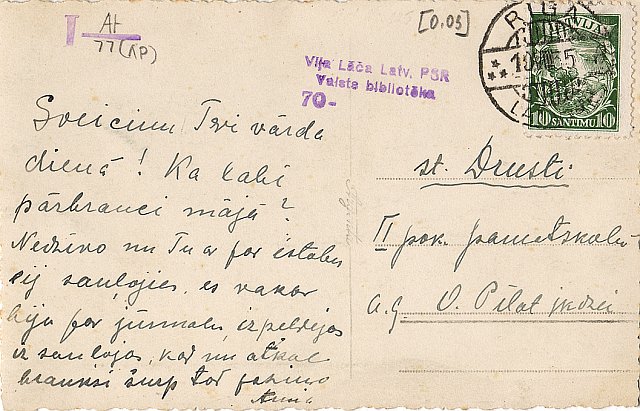 T At
77(RP)
[0.05]
Vija Lāča Latv. PSR
Valsts bibliotēka
70-
RIGA
LATVIJA
10 SANTIMU 10
Sveicinu Tevi vārda
dienā! Ka labi
pārbrauci mājā?
Nedzīvo nu Tu ar pa istabu
ej sauļojies, es vakar
biju pa jūrmalu, izpeldējos
iz sauļojos, kad nu atkal
brauksi šurp tad paziņo
Anna
st. Drusti
II pak. pamatskolā
a.g. O. Pilat jkdzei